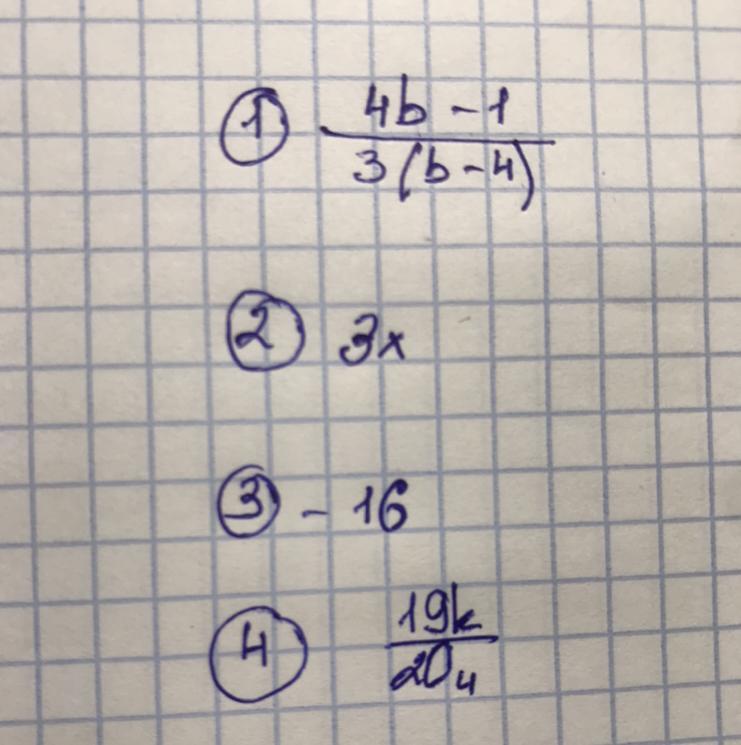 1 4b - 1
3(b - 4)
2 3x
3 - 16
4 19k
20 4